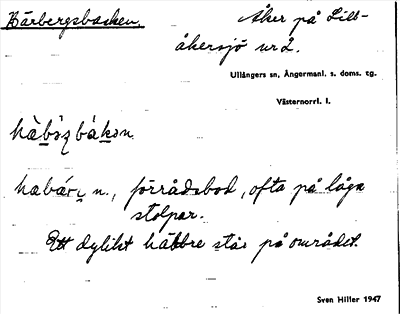 Bärbergsbacken.
Åker på Lill-
åkersjö nr 2.
Ullångers sn, Ångermanl. s. doms. tg.
Västernorrl. l.
n., förrådsbod, ofta på låga
stolpar.
Ett dylikt häbbre står på området.
Sven Hilfer 1947